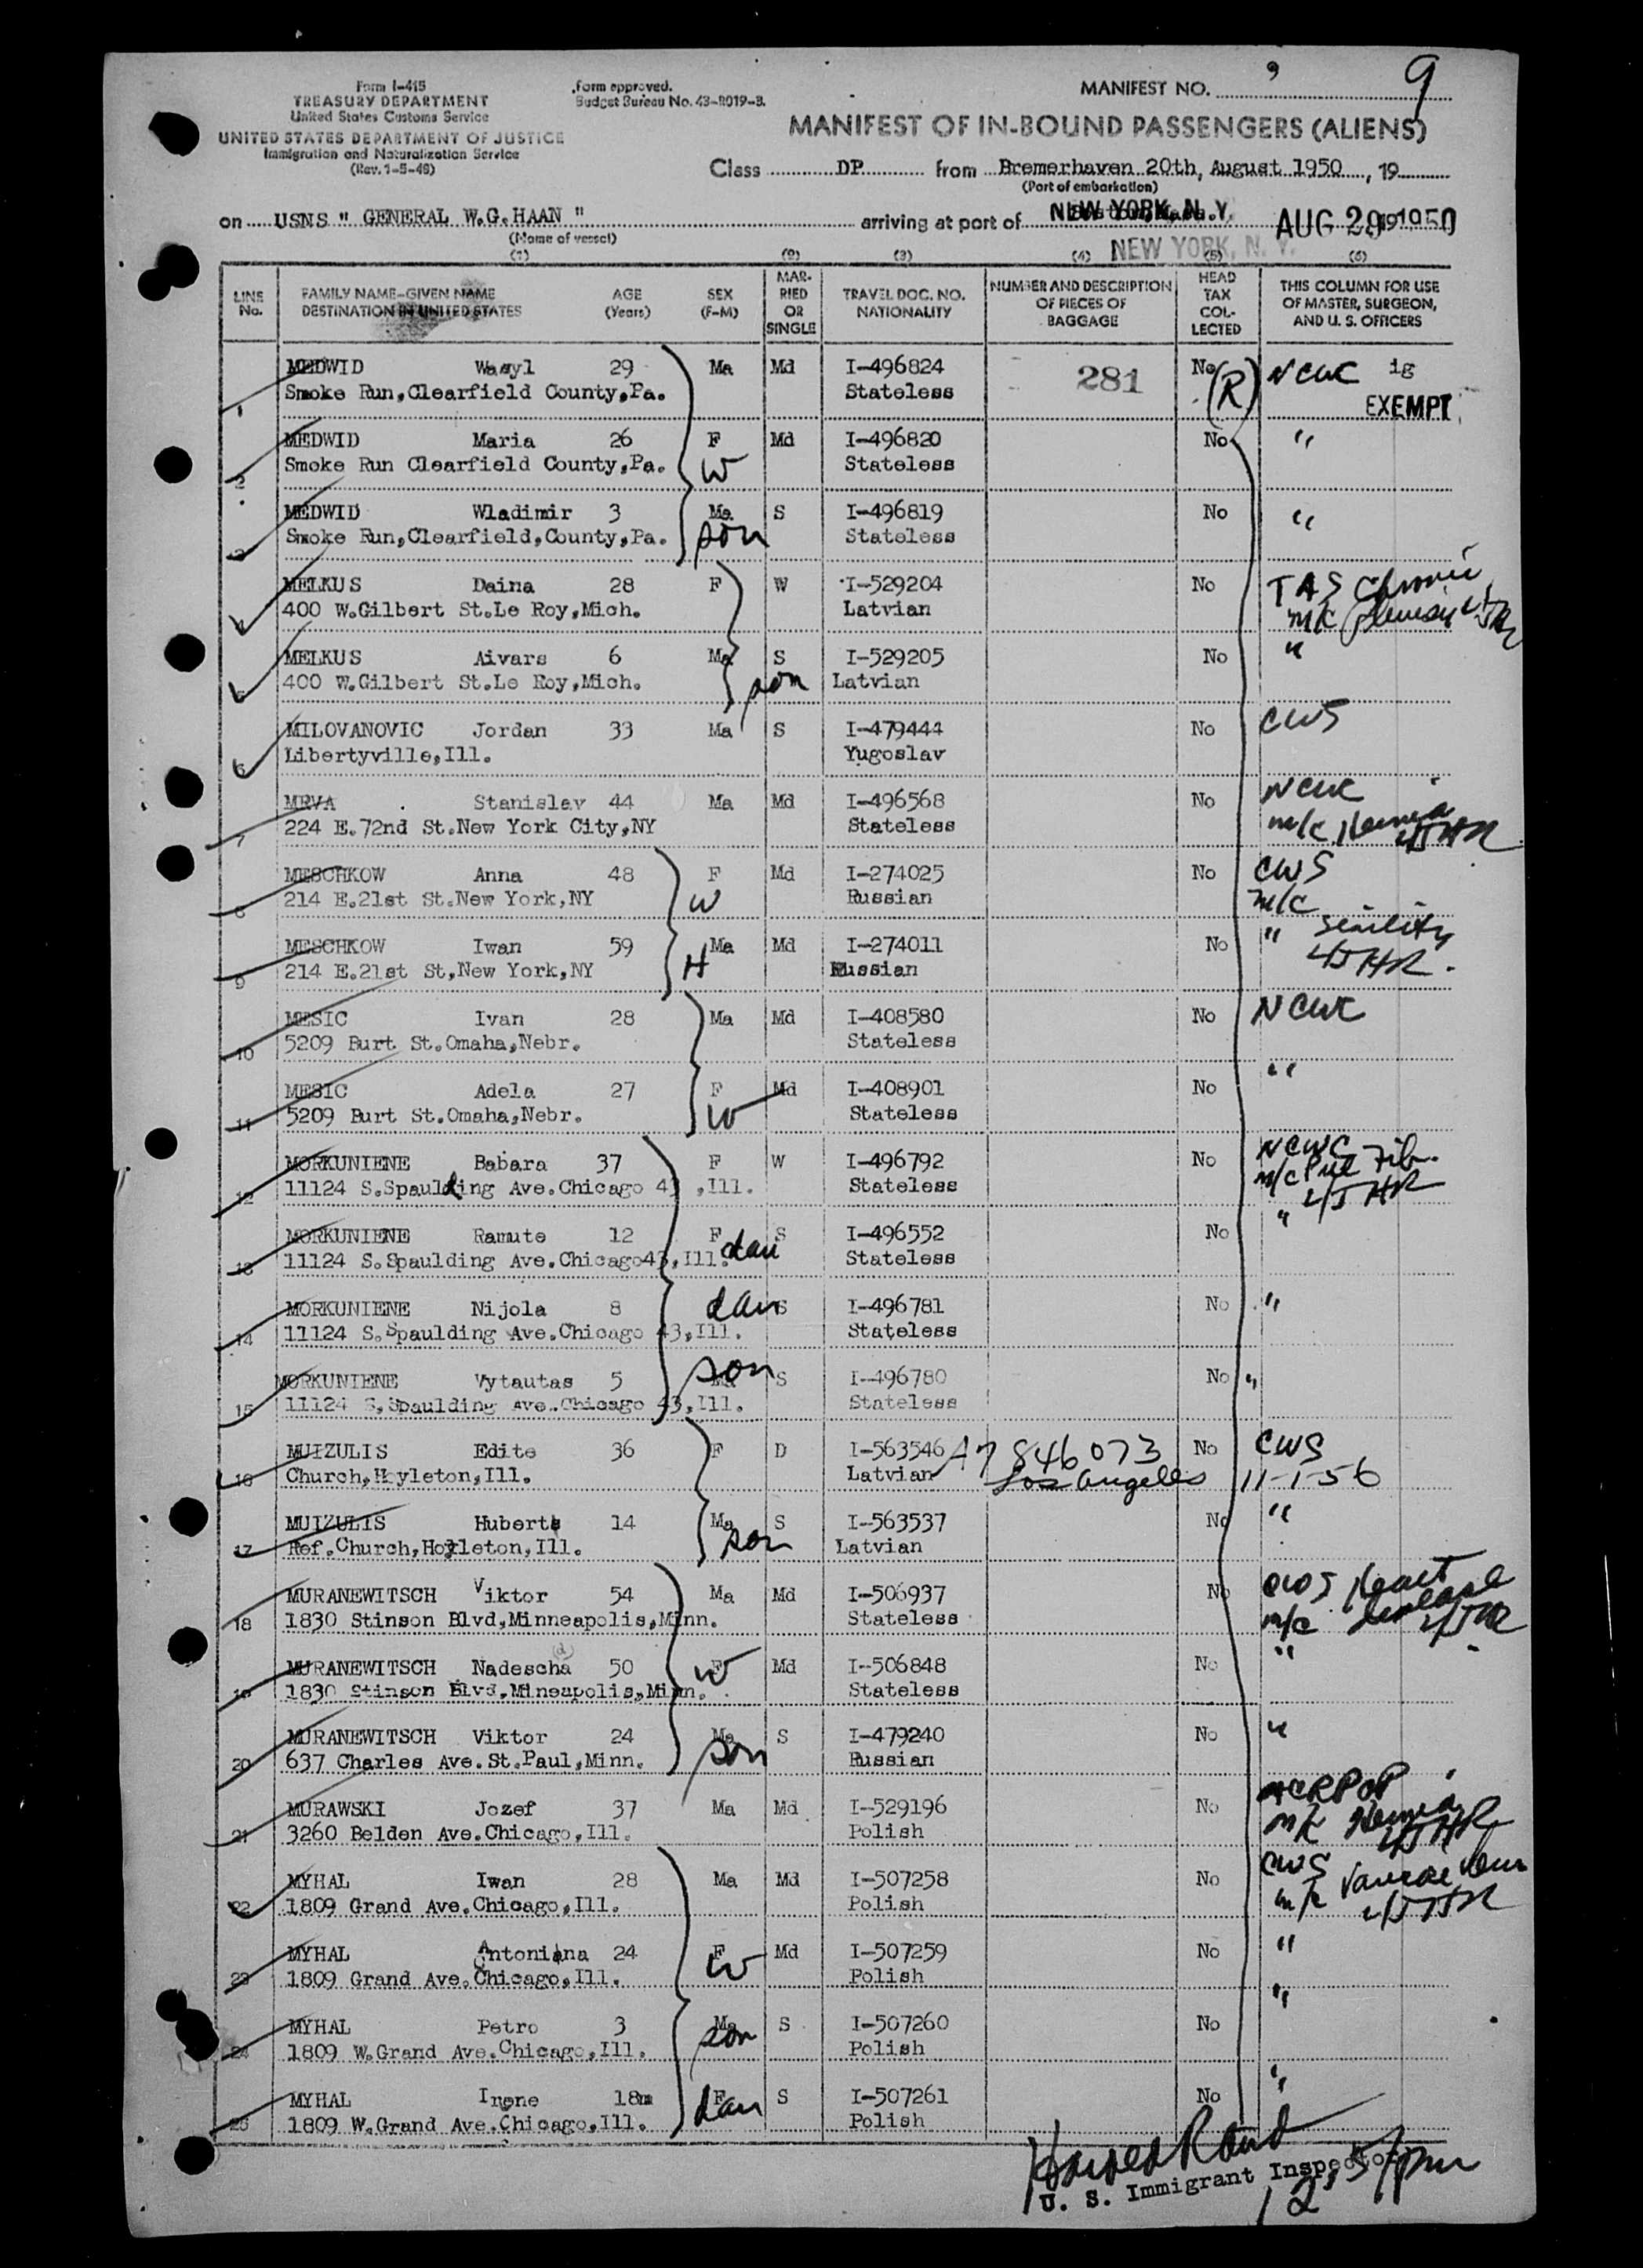 9
Form I-415
TREASURY DEPARTMENT
United States Customs Service
UNITED STATES DEPARTMENT OF JUSTICE
Immigration and Naturalization Service
(Rev. 1-5-48)
Form approved.
Budget Bureau No. 43-R019-3.
MANIFEST NO. 9
MANIFEST OF IN-BOUND PASSENGERS (ALIENS)
Class DP from Bremerhaven 20th, August 1950, 19
(Port of embarkation)
on USNS " GENERAL W.G.HAAN " arriving at port of NEW YORK, N. Y. AUG 29 1950
(Name of vessel)
NEW YORK, N. Y.
(1) (2) (3) (4) (5) (6)
LINE No. FAMILY NAME-GIVEN NAME DESTINATION IN UNITED STATES AGE (Years) SEX (F-M) MARRIED OR SINGLE TRAVEL DOC. NO. NATIONALITY NUMBER AND DESCRIPTION OF PIECES OF BAGGAGE HEAD TAX COLLECTED THIS COLUMN FOR USE OF MASTER, SURGEON, AND U. S. OFFICERS
MEDWID Wasyl 29 Ma Md I-496824 281 No (R) NCWC ig
1 Smoke Run,Clearfield County,Pa. Stateless EXEMPT
MEDWID Maria 26 F Md I-496820 No "
2 Smoke Run Clearfield County,Pa. W Stateless
MEDWID Wladimir 3 Ma S I-496819 No "
3 Smoke Run,Clearfield,County,Pa. son Stateless
MELKUS Daina 28 F W I-529204 No TAS Chronic
4 400 W.Gilbert St.Le Roy,Mich. Latvian m/c pleurisy
MELKUS Aivars 6 Ma S I-529205 No "
5 400 W.Gilbert St.Le Roy,Mich. son Latvian
MILOVANOVIC Jordan 33 Ma S I-479444 No CWS
6 Libertyville,Ill. Yugoslav
MRVA Stanislav 44 Ma Md I-496568 No NCWC
7 224 E.72nd St.New York City,NY Stateless m/c Hernia
MESCHKOW Anna 48 F Md I-274025 No CWS
8 214 E.21st St.New York,NY W Russian m/c
MESCHKOW Iwan 59 Ma Md I-274011 No " Senility
9 214 E.21st St,New York,NY H Russian
MESIC Ivan 28 Ma Md I-408580 No NCWC
10 5209 Burt St.Omaha,Nebr. Stateless
MESIC Adela 27 F Md I-408901 No "
11 5209 Burt St.Omaha,Nebr. W Stateless
MORKUNIENE Babara 37 F W I-496792 No NCWC
12 11124 S.Spaulding Ave.Chicago 43 ,Ill. Stateless m/c Pul Fib.
MORKUNIENE Ramute 12 F S I-496552 No "
13 11124 S.Spaulding Ave.Chicago43,Ill. dau Stateless
MORKUNIENE Nijola 8 dau S I-496781 No "
14 11124 S.Spaulding Ave.Chicago 43,Ill. Stateless
MORKUNIENE Vytautas 5 son S I-496780 No "
15 11124 S.Spaulding Ave.Chicago 43,Ill. Stateless
MUIZULIS Edite 36 F D I-563546 A7 846073 No CWS
16 Church,Hoyleton,Ill. Latvian Los Angeles 11-1-56
MUIZULIS Huberts 14 Ma S I-563537 No "
17 Ref.Church,Hoyleton,Ill. son Latvian
MURANEWITSCH Viktor 54 Ma Md I-506937 No CWS Heart
18 1830 Stinson Blvd,Minneapolis,Minn. Stateless m/c disease
MURANEWITSCH Nadescha 50 F W Md I-506848 No "
19 1830 Stinson Blvd,Mineapolis,Minn. Stateless
MURANEWITSCH Viktor 24 Ma S I-479240 No "
20 637 Charles Ave.St.Paul,Minn. son Russian
MURAWSKI Jozef 37 Ma Md I-529196 No
21 3260 Belden Ave.Chicago,Ill. Polish m/c Hernia
MYHAL Iwan 28 Ma Md I-507258 No CWS
22 1809 Grand Ave.Chicago,Ill. Polish m/c
MYHAL Antonina 24 F Md I-507259 No "
23 1809 Grand Ave.Chicago,Ill. W Polish
MYHAL Petro 3 Ma S I-507260 No "
24 1809 W.Grand Ave.Chicago,Ill. son Polish
MYHAL Irene 18m F S I-507261 No "
25 1809 W.Grand Ave.Chicago,Ill. dau Polish
U. S. Immigrant Inspector